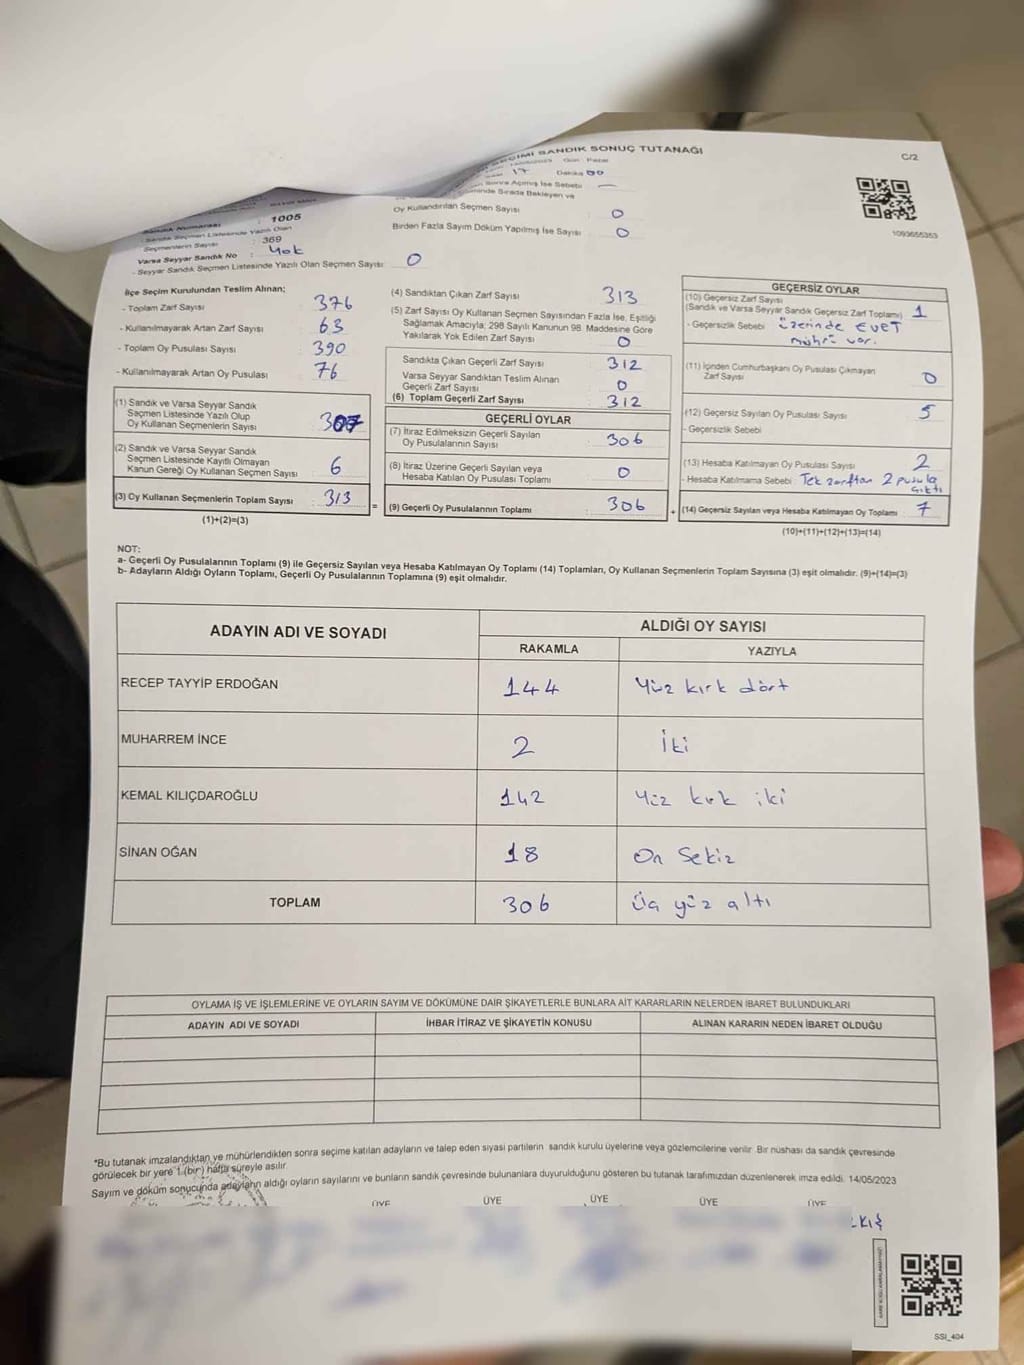 SEÇİMİ SANDIK SONUÇ TUTANAĞI
C/2
Gün Pazar
17 Dakika 00
Sonra Açılmış İse Sebebi —
Sırada Bekleyen ve
Oy Kullandırılan Seçmen Sayısı 0
Birden Fazla Sayım Döküm Yapılmış İse Sayısı 0
1093655353
Sandık Numarası : 1005
Sandık Seçmen Listesinde Yazılı Olan
Seçmenlerin Sayısı : 369
Varsa Seyyar Sandık No : Yok
- Seyyar Sandık Seçmen Listesinde Yazılı Olan Seçmen Sayısı 0
İlçe Seçim Kurulundan Teslim Alınan;
- Toplam Zarf Sayısı 376
- Kullanılmayarak Artan Zarf Sayısı 63
- Toplam Oy Pusulası Sayısı 390
- Kullanılmayarak Artan Oy Pusulası 76
(1) Sandık ve Varsa Seyyar Sandık
Seçmen Listesinde Yazılı Olup
Oy Kullanan Seçmenlerin Sayısı 307
(2) Sandık ve Varsa Seyyar Sandık
Seçmen Listesinde Kayıtlı Olmayan
Kanun Gereği Oy Kullanan Seçmen Sayısı 6
(3) Oy Kullanan Seçmenlerin Toplam Sayısı 313
(1)+(2)=(3)
=
(4) Sandıktan Çıkan Zarf Sayısı 313
(5) Zarf Sayısı Oy Kullanan Seçmen Sayısından Fazla İse, Eşitliği
Sağlamak Amacıyla; 298 Sayılı Kanunun 98. Maddesine Göre
Yakılarak Yok Edilen Zarf Sayısı 0
Sandıkta Çıkan Geçerli Zarf Sayısı 312
Varsa Seyyar Sandıktan Teslim Alınan
Geçerli Zarf Sayısı 0
(6) Toplam Geçerli Zarf Sayısı : 312
GEÇERLİ OYLAR
(7) İtiraz Edilmeksizin Geçerli Sayılan
Oy Pusulalarının Sayısı : 306
(8) İtiraz Üzerine Geçerli Sayılan veya
Hesaba Katılan Oy Pusulası Toplamı : 0
(9) Geçerli Oy Pusulalarının Toplamı : 306
+
GEÇERSİZ OYLAR
(10) Geçersiz Zarf Sayısı
(Sandık ve Varsa Seyyar Sandık Geçersiz Zarf Toplamı) 1
- Geçersizlik Sebebi : üzerinde EVET
mührü var.
(11) İçinden Cumhurbaşkanı Oy Pusulası Çıkmayan
Zarf Sayısı 0
(12) Geçersiz Sayılan Oy Pusulası Sayısı 5
- Geçersizlik Sebebi
(13) Hesaba Katılmayan Oy Pusulası Sayısı 2
- Hesaba Katılmama Sebebi : Tek zarftan 2 pusula
çıktı
(14) Geçersiz Sayılan veya Hesaba Katılmayan Oy Toplamı 7
(10)+(11)+(12)+(13)=(14)
NOT:
a- Geçerli Oy Pusulalarının Toplamı (9) ile Geçersiz Sayılan veya Hesaba Katılmayan Oy Toplamı (14) Toplamları, Oy Kullanan Seçmenlerin Toplam Sayısına (3) eşit olmalıdır. (9)+(14)=(3)
b- Adayların Aldığı Oyların Toplamı, Geçerli Oy Pusulalarının Toplamına (9) eşit olmalıdır.
ADAYIN ADI VE SOYADI
ALDIĞI OY SAYISI
RAKAMLA YAZIYLA
RECEP TAYYİP ERDOĞAN 144 Yüz kırk dört
MUHARREM İNCE 2 İki
KEMAL KILIÇDAROĞLU 142 Yüz kırk iki
SİNAN OĞAN 18 On Sekiz
TOPLAM 306 Üç yüz altı
OYLAMA İŞ VE İŞLEMLERİNE VE OYLARIN SAYIM VE DÖKÜMÜNE DAİR ŞİKAYETLERLE BUNLARA AİT KARARLARIN NELERDEN İBARET BULUNDUKLARI
ADAYIN ADI VE SOYADI İHBAR İTİRAZ VE ŞİKAYETİN KONUSU ALINAN KARARIN NEDEN İBARET OLDUĞU
*Bu tutanak imzalandıktan ve mühürlendikten sonra seçime katılan adayların ve talep eden siyasi partilerin sandık kurulu üyelerine veya gözlemcilerine verilir. Bir nüshası da sandık çevresinde
görülecek bir yere 1 (bir) hafta süreyle asılır.
Sayım ve döküm sonucunda adayların aldığı oyların sayılarını ve bunların sandık çevresinde bulunanlara duyurulduğunu gösteren bu tutanak tarafımızdan düzenlenerek imza edildi. 14/05/2023
ÜYE ÜYE ÜYE ÜYE ÜYE
SSI_404